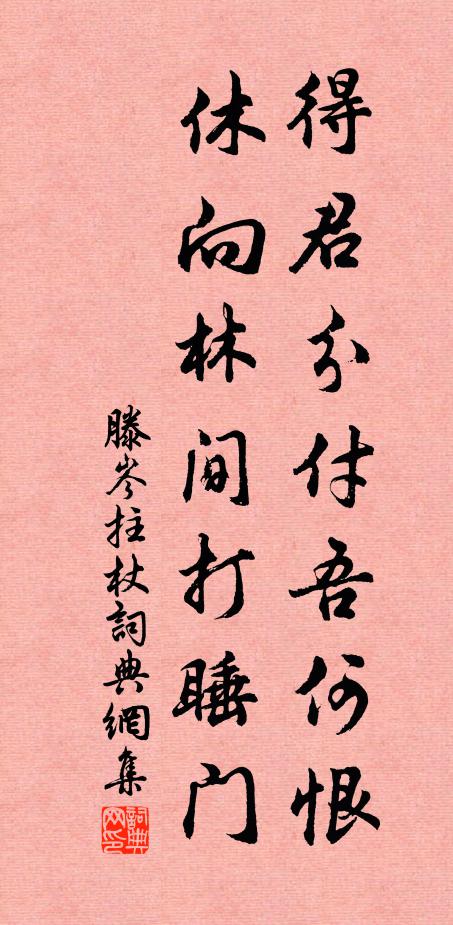 得君分付吾何恨
休向林间打睡门
滕岑拄杖詞典網集
詞典网印